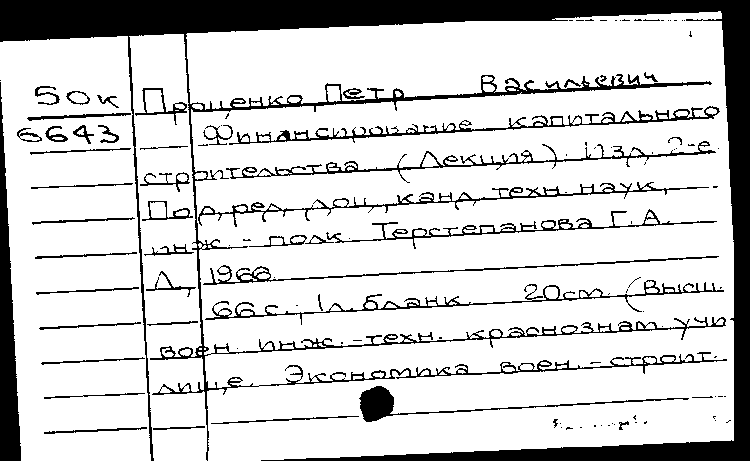 50к Проценко, Петр Васильевич
6643 Финансирование капитального
строительства. (Лекция). Изд. 2-е
Под ред. доц., канд. техн. наук,
инж.-полк. Терстепанова Г.А.
Л., 1966.
66 с., 1 л. бланк. 20см. (Высш.
воен. инж.-техн. краснознам. учи-
лище. Экономика воен.-строит.